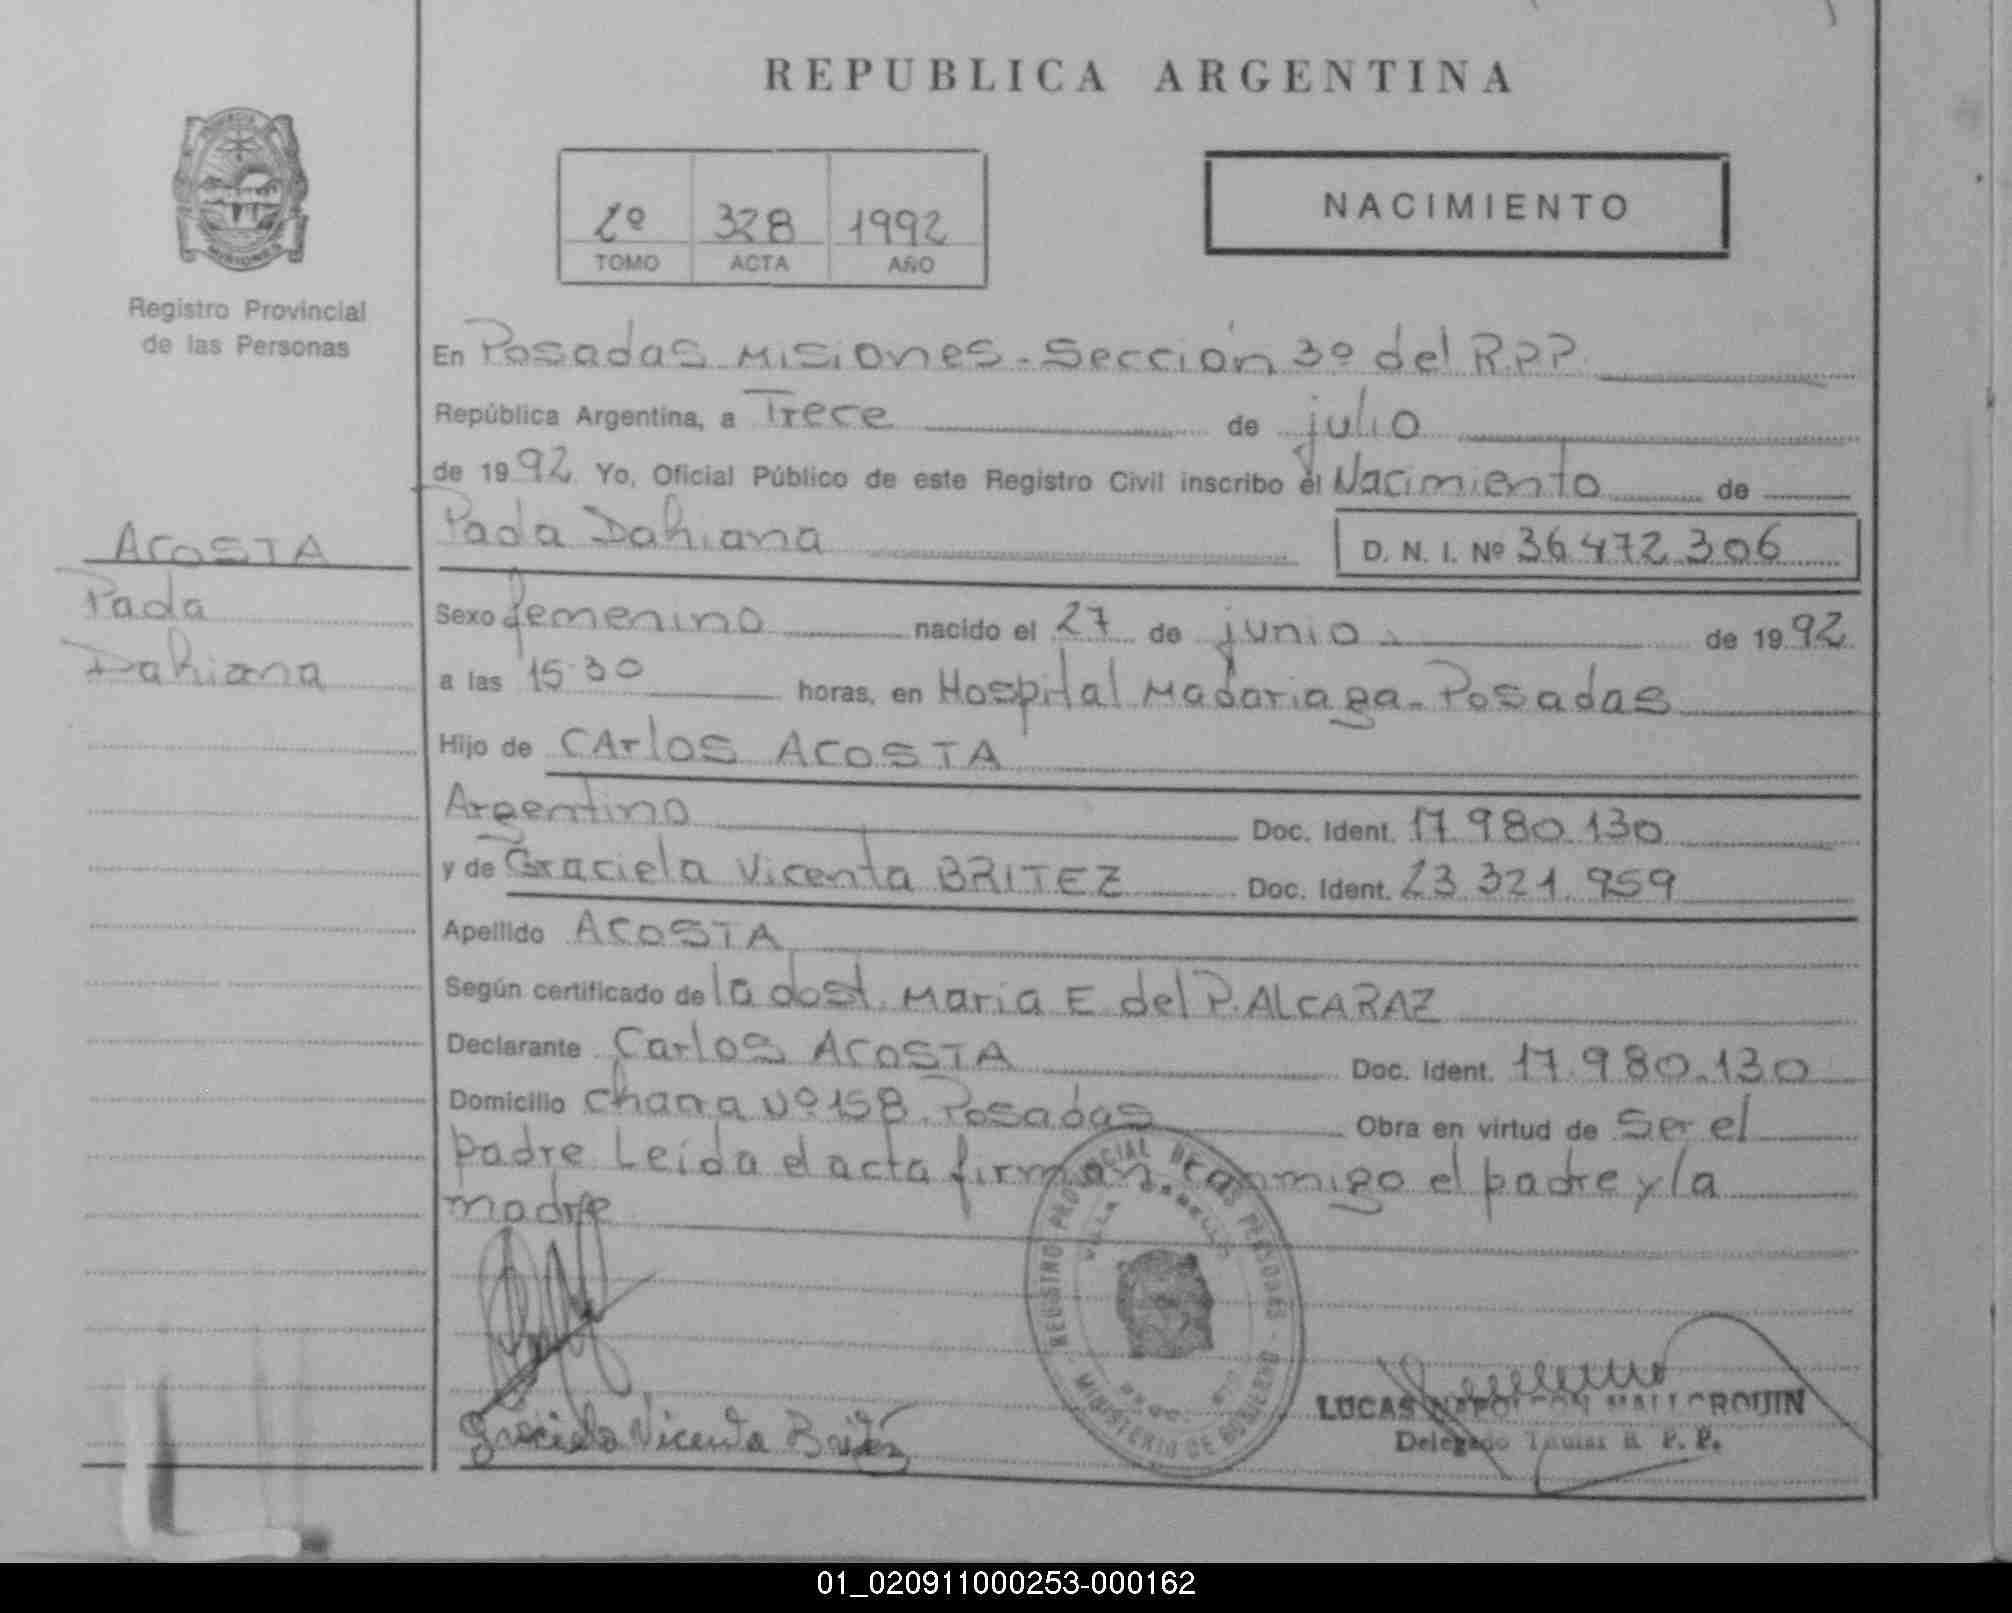 REPUBLICA ARGENTINA
2º 328 1992
TOMO ACTA AÑO
NACIMIENTO
MISIONES
Registro Provincial
de las Personas
En Posadas Misiones - Sección 3º del R.P.P.
República Argentina, a Trece de julio
de 1992. Yo, Oficial Público de este Registro Civil inscribo el Nacimiento de
Pada Dahiana D. N. I. Nº 36.472.306
ACOSTA
Pada
Dahiana
Sexo femenino nacido el 27 de junio de 1992
a las 15.30 horas, en Hospital Madariaga - Posadas
Hijo de CArlos ACOSTA
Argentino Doc. Ident. 17.980.130
y de Graciela Vicenta BRITEZ Doc. Ident. 23.321.959
Apellido ACOSTA
Según certificado de la dost. Maria E del P. ALCARAZ
Declarante Carlos ACOSTA Doc. Ident. 17.980.130
Domicilio Chana Nº 158 Posadas Obra en virtud de Ser el
padre Leída el acta firman conmigo el padre y la
madre
REGISTRO PROVINCIAL DE LAS PERSONAS - MINISTERIO DE GOBIERNO -
VILLA CABELLO
Graciela Vicenta Britez
LUCAS NAPOLEON MALLORQUIN
Delegado Titular R. P. P.
01_020911000253-000162